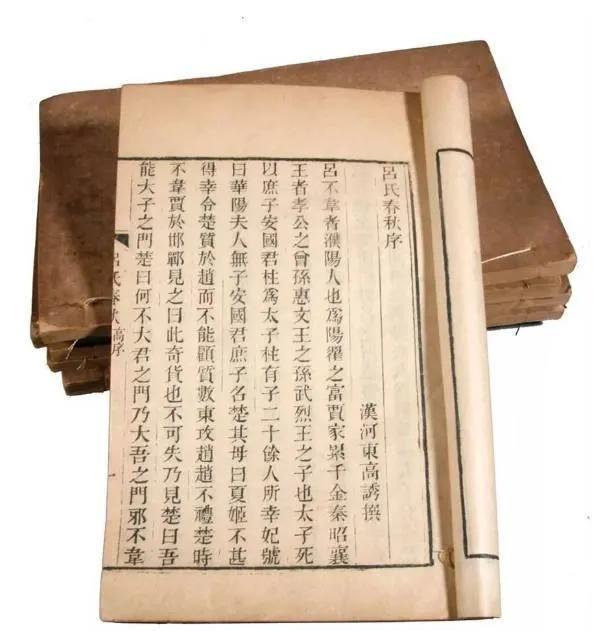 呂氏春秋序
漢河東高誘撰
呂不韋者濮陽人也爲陽翟之富賈家累千金秦昭襄
王者孝公之曾孫惠文王之孫武烈王之子也太子死
以庶子安國君柱爲太子柱有子二十餘人所幸妃號
曰華陽夫人無子安國君庶子名楚其母曰夏姬不甚
得幸令楚質於趙而不能顧質數東攻趙趙不禮楚時
不韋賈於邯鄲見之曰此奇貨也不可失乃見楚曰吾
能大子之門楚曰何不大君之門乃大吾之門邪不韋
呂氏春秋高序
一